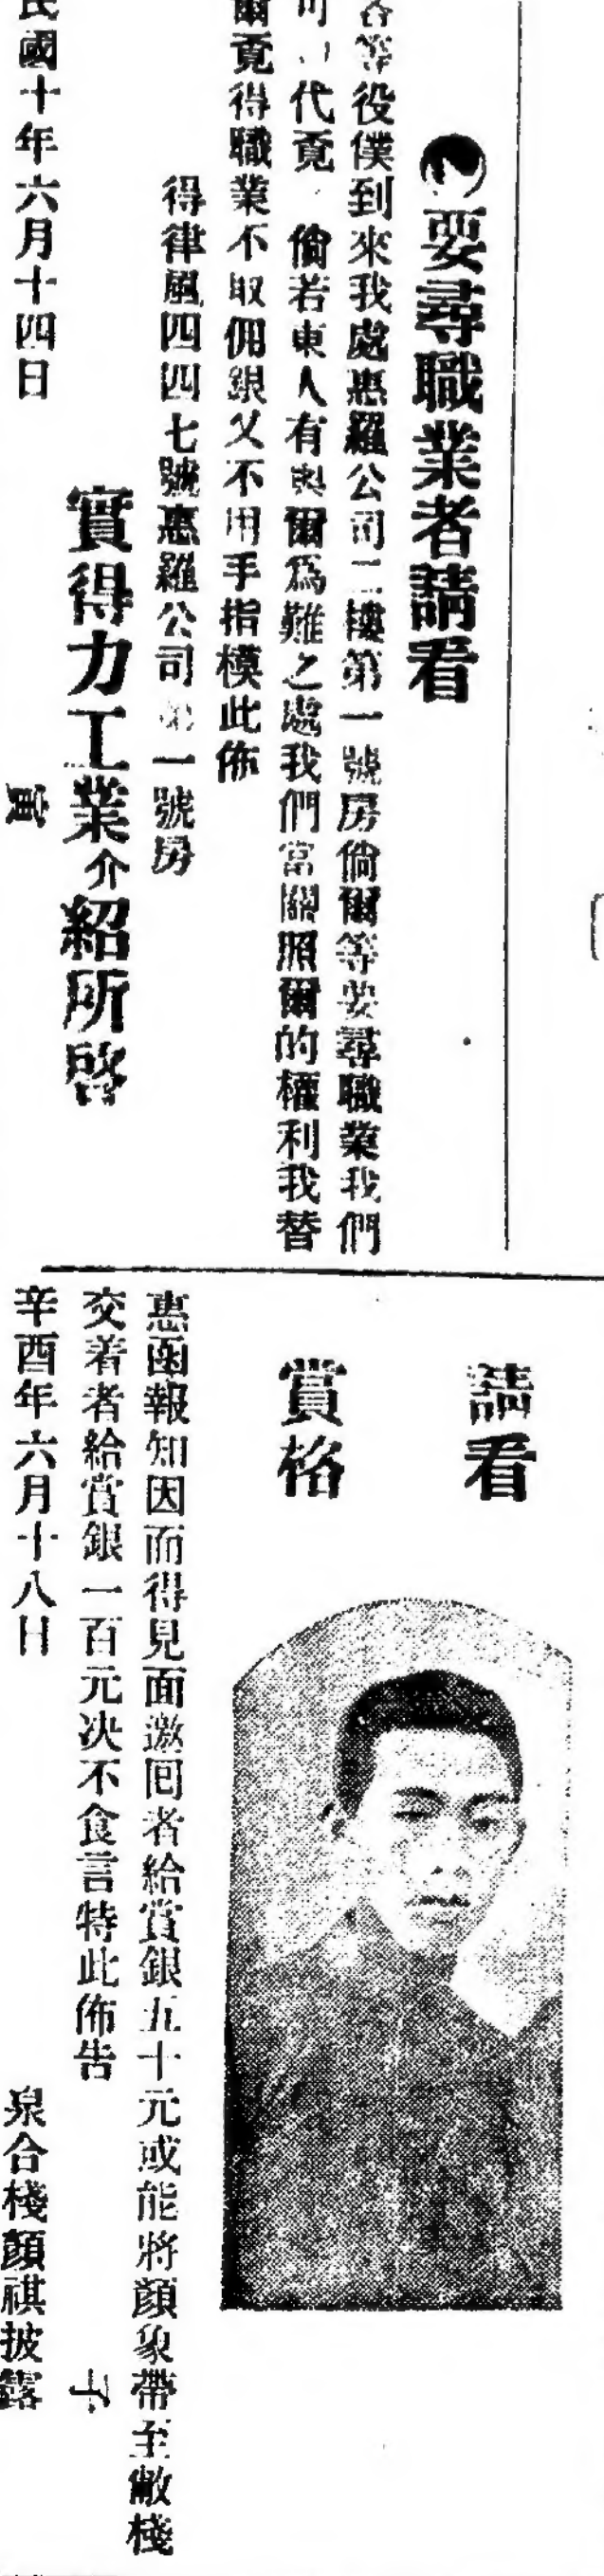 要尋職業者請看
各等役僕到來我處惠羅公司二樓第一號房倘爾等要尋職業我們
可 代覓 倘若東人有與爾為難之處我們當關照爾的權利我替
爾覓得職業不取佣銀又不用手指模此佈
得律風四四七號惠羅公司第一號房
實得力工業介紹所啓
民國十年六月十四日
請看
賞格
惠函報知因而得見面邀囘者給賞銀五十元或能將顏象帶至敝棧
交着者給賞銀一百元决不食言特此佈告
辛酉年六月十八日
泉合棧顏祺披露